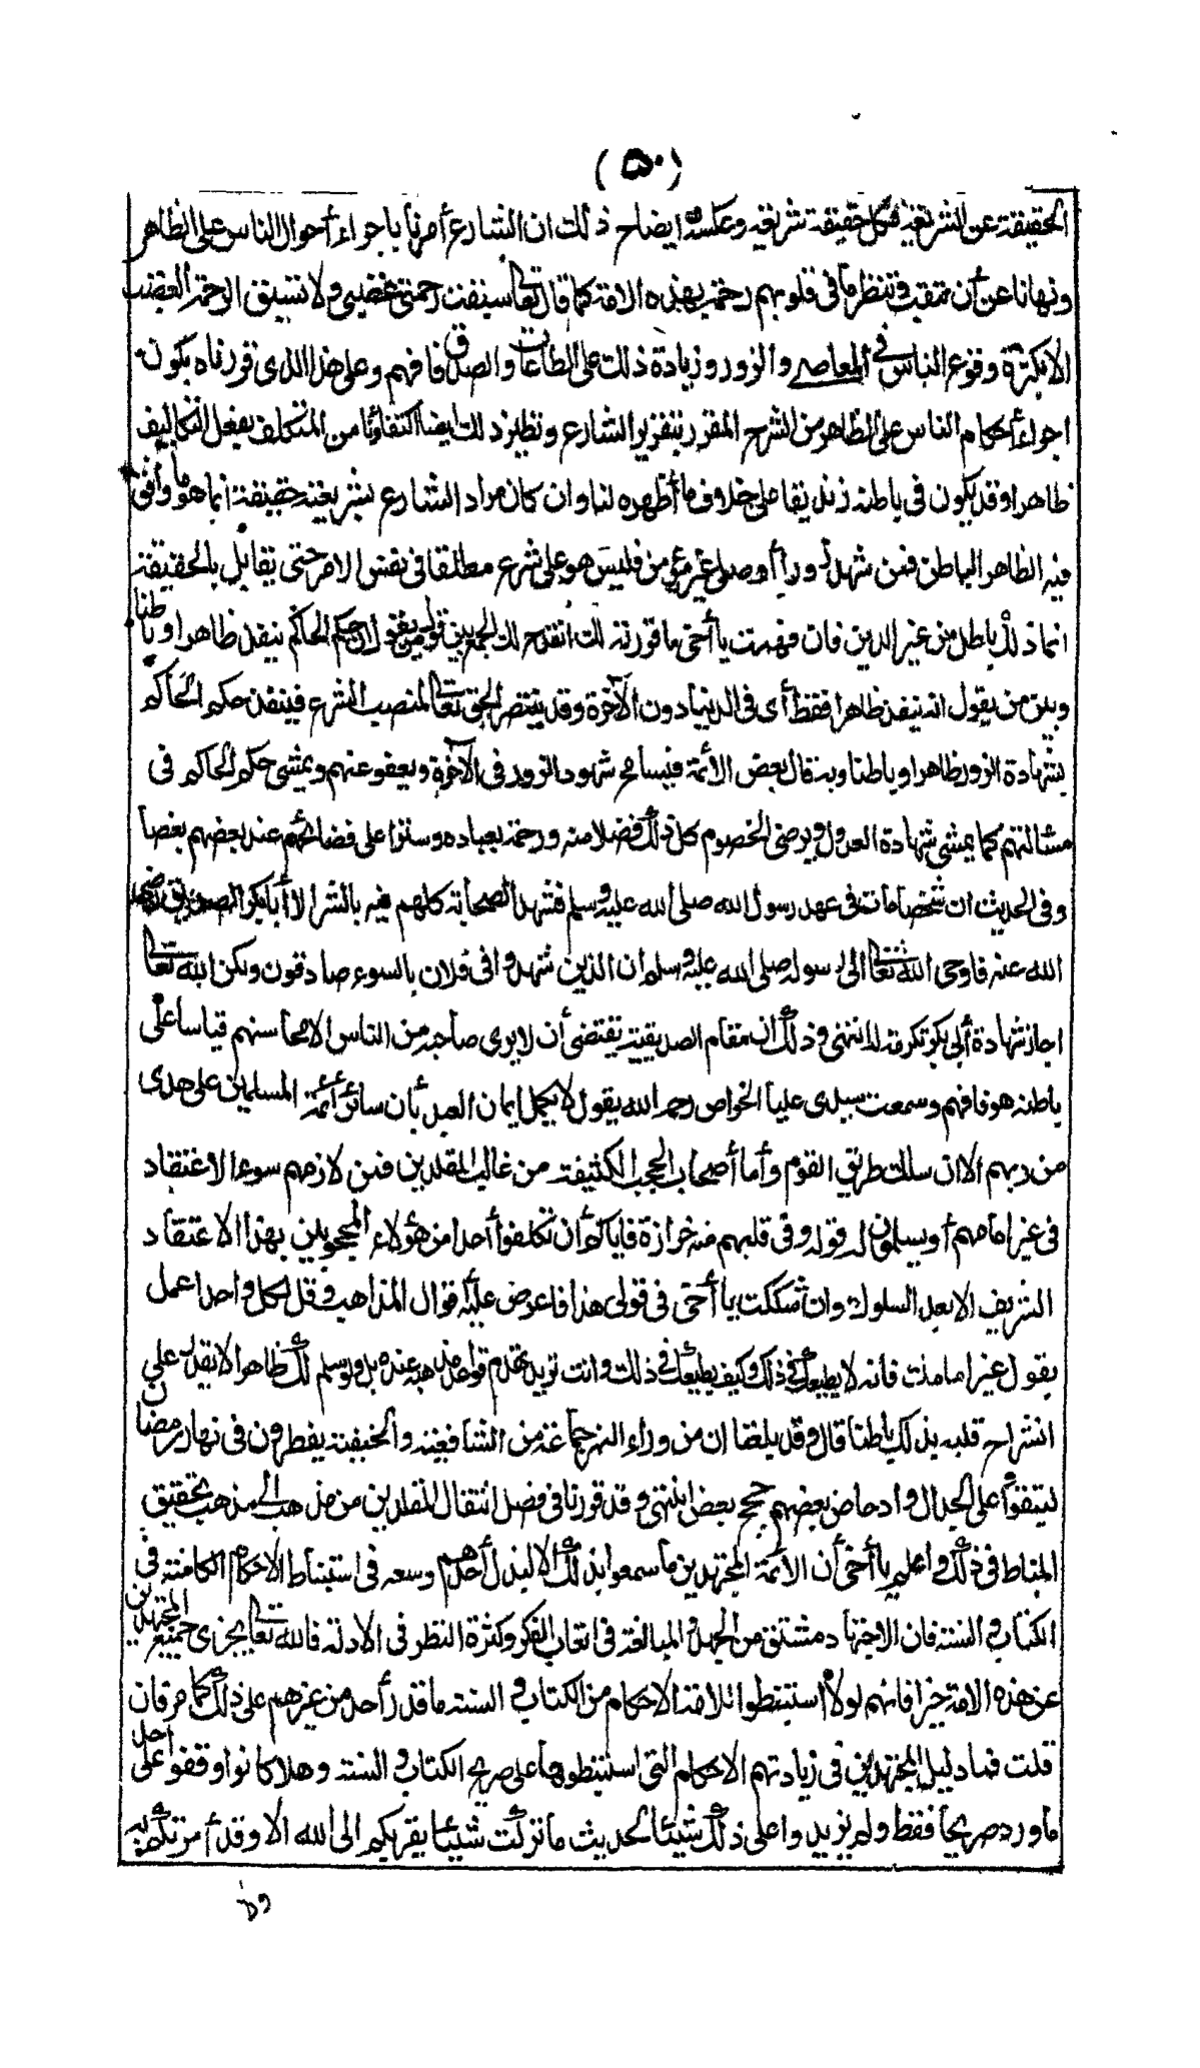 (٥٠)
الحقيقة عن الشريعة فكل حقيقة شريعة وعكسه ايضاح ذلك ان الشارع أمرنا باجراء أحوال الناس على الظاهر
ونهانا عن أن ننقب وننظر ما فى قلوبهم رحمة بهذه الامة كما قال تعالى سبقت رحمتى غضبى ولا تسبق الرحمة الغضب
الا بكثرة وقوع الناس فى المعاصى والزور وزيادة ذلك على الطاعات والصدق فافهم وعلى هذا الذى قررناه يكون
اجراء أحكام الناس على الظاهر من الشرع المقرر بتقرير الشارع ونظير ذلك ايضا اكتفاؤنا من المتكلف بفعل التكاليف
ظاهرا وقد يكون فى باطنه زنديقا على خلاف ما أظهره لنا وان كان مراد الشارع بشريعته حقيقة انما هو ما وافق
فيه الظاهر الباطن فمن شهد زورا أو صلى غير مؤمن فليس هو على شرع مطلقا فى نفس الامر حتى يقابل بالحقيقة
انما ذلك باطل من غير الدين فان فهمت يا أخى ما قررته لك انقدح لك الجمع بين قول من يقول ان حكم الحاكم ينفذ ظاهرا وباطنا
وبين من يقول انه ينفذ ظاهرا فقط أى فى الدنيا دون الآخرة وقد ينتصر الحق تعالى لمنصب الشرع فينفذ حكم الحاكم
بشهادة الزور ظاهرا وباطنا وبه قال بعض الأئمة فيسامح شهود الزور فى الآخرة ويعفو عنهم ويمشى حكم الحاكم فى
مسألتهم كما يمشى شهادة العدول ويرضى الخصوم كل ذلك فضلا منه ورحمة بعباده وسترا على فضائحهم عند بعضهم بعضا
وفى الحديث ان شخصا مات فى عهد رسول الله صلى الله عليه وسلم فشهد الصحابة كلهم فيه بالشر الا أبا بكر الصديق رضى
الله عنه فاوحى الله تعالى الى رسوله صلى الله عليه وسلم ان الذين شهدوا فى فلان بالسوء صادقون ولكن الله تعالى
اجاز شهادة أبى بكر تكرمة له انتهى وذلك ان مقام الصديقية يقتضى أن لا يرى صاحبه من الناس الا محاسنهم قياسا على
باطنه هو فافهم وسمعت سيدى عليا الخواص رحمه الله يقول لا يكمل ايمان العبد بأن سائر أئمة المسلمين على هدى
من ربهم الا ان سلك طريق القوم وأما أصحاب الحجب الكثيفة من غالب المقلدين فمن لازمهم سوء الاعتقاد
فى غير امامهم أو يسلمون له قوله وفى قلبهم منه حزازة فاياكم أن تكلفوا أحدا من هؤلاء المحجوبين بهذا الاعتقاد
الشريف الا بعد السلوك وان شككت يا أخى فى قولى هذا فاعرض عليه أقوال المذاهب وقل لكل واحد اعمل
بقول غير امامك فانه لا يطيعك فى ذلك وكيف يطيعك فى ذلك وانت تريد تهدم قواعد مذهبه عنده بل ولو سلم لك ظاهرا لا يقدر على
انشراح قلبه بذلك باطنا قال وقد بلغنا ان من وراء النهر جماعة من الشافعية والحنفية يفطرون فى نهار رمضان
ليتقووا على الجدال وادحاض بعضهم حجج بعض انتهى وقد قررنا فى فصل انتقال المقلدين من مذهب الى مذهب تحقيق
المناط فى ذلك واعلم يا أخى أن الأئمة المجتهدين ما سموا بذلك الا لبذل أحدهم وسعه فى استنباط الاحكام الكامنة فى
الكتاب والسنة فان الاجتهاد مشتق من الجهد والمبالغة فى اتعاب الفكر وكثرة النظر فى الادلة فالله تعالى يجزى جميع المجتهدين
عن هذه الامة خيرا فانهم لولا استنبطوا للامة الاحكام من الكتاب والسنة ما قدر أحد من غيرهم على ذلك كما مر فان
قلت فما دليل المجتهدين فى زيادتهم الاحكام التى استنبطوها على صريح الكتاب والسنة وهلا كانوا وقفوا على احد
ما ورد صريحا فقط ولم يزيدوا على ذلك شيئا لحديث ما تركت شيئا يقربكم الى الله الا وقد أمرتكم به